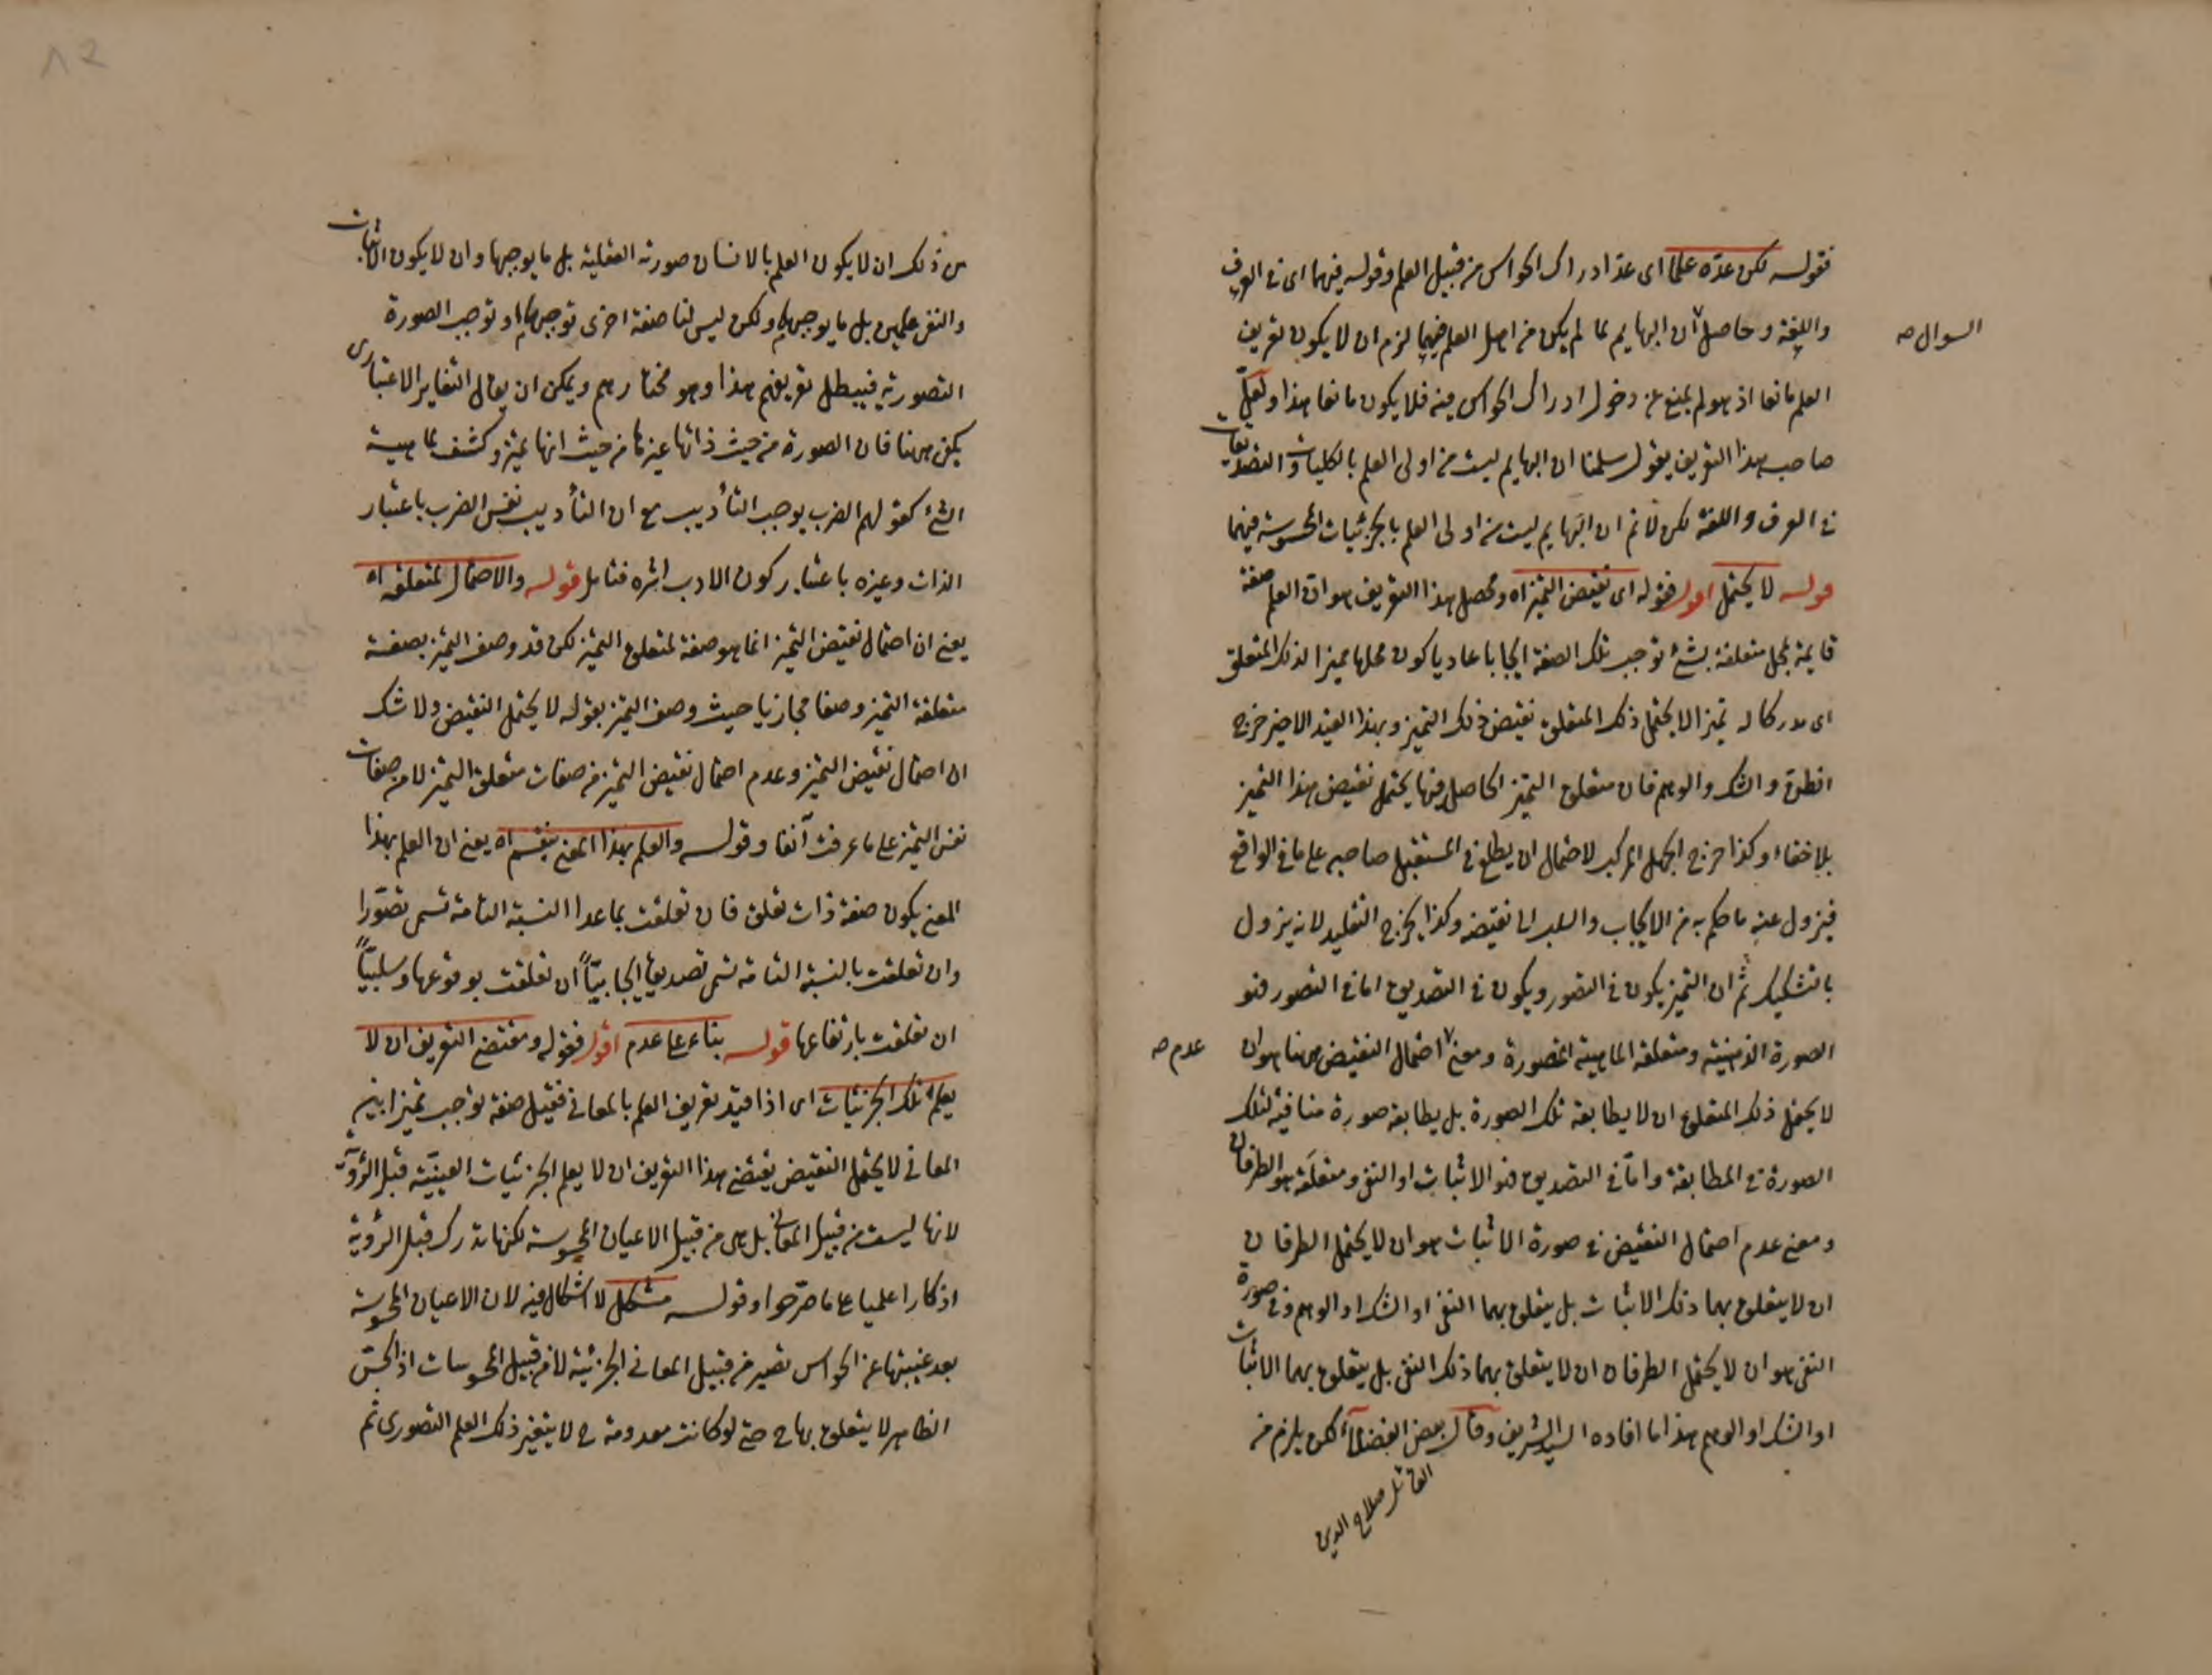 فقوله لكن عدّه علما اى عدّ ادراك الحواس من قبيل العلم وقوله فيهما اى فى العرف
واللغة وحاصل ان البهايم لما لم يكن من اهل العلم فيهما لزم ان لا يكون تعريف
السوال صه
العلم مانعا اذ هو لم يمنع عن دخول ادراك الحواس فيه فلا يكون مانعا هذا ولعلّ
صاحب هذا التعريف يقول سلمنا ان البهايم ليست من اولى العلم بالكليات والتصديقات
فى العرف واللغة لكن لا نم ان البهايم ليست من اولى العلم بالجزئيات المحسوسة فيهما
قوله لا يحتمل اقول فقوله اى نقيض التميز اه ومحصل هذا التعريف هو ان العلم صفة
قايمة بمحل متعلقة بشئ توجب تلك الصفة ايجابا عاديا كون محلها مميزا لذلك المتعلق
اى مدركا له تميزا لا يحتمل ذلك المتعلق نقيض ذلك التميز وبهذا القيد الاخير خرج
الظن والشك والوهم فان متعلق التميز الحاصل فيها يحتمل نقيض هذا التميز
بلا خفاء وكذا خرج الجهل المركب لاحتمال ان يطلع فى المستقبل صاحبه على ما فى الواقع
فيزول عنه ما حكم به من الايجاب والسلب الى نقيضه وكذا يخرج التقليد لانه يزول
بالتشكيك ثم ان التميز يكون فى التصور ويكون فى التصديق اما فى التصور فهو
الصورة الذهنية ومتعلقه الماهية المتصورة ومعنى احتمال النقيض ههنا هو ان
عدم صه
لا يحتمل ذلك المتعلق ان لا يطابقه تلك الصورة بل يطابقه صورة منافية لتلك
الصورة فى المطابقة وامّا فى التصديق فهو الاثبات او النفى ومتعلقه هو الطرفان
ومعنى عدم احتمال النقيض فى صورة الاثبات هو ان لا يحتمل الطرفان
ان لا يتعلق بهما ذلك الاثبات بل يتعلق بهما النفى او الشك او الوهم وفى صورة
النفى هو ان لا يحتمل الطرفان ان لا يتعلق بهما ذلك النفى بل يتعلق بهما الاثبات
او الشك او الوهم هذا ما افاده السيد الشريف وقال بعض الفضلاء لكن يلزم من
القائل صلاح الدين
من ذلك ان لا يكون العلم بالانسان صورته العقلية بل ما يوجبها وان لا يكون الاثبات
والنفى علمين بل ما يوجبهما ولكن ليس لنا صفة اخرى توجبهما او توجب الصورة
التصورية فيبطل تعريفهم هذا وهو مختارهم ويمكن ان يقال التغاير الاعتبارى
يكفى ههنا فان الصورة من حيث ذاتها غيرها من حيث انها تميز وكشف لماهية
الشئ كقولهم الضرب يوجب التأديب مع ان التأديب نفس الضرب باعتبار
الذات وغيره باعتبار كون الادب اثره فتامل قوله والاحتمال لمتعلقه اه
يعنى ان احتمال نقيض التميز انما هو صفة لمتعلق التميز لكن قد وصف التميز بصفة
متعلقة التميز وصفا مجازيا حيث وصف التميز بقوله لا يحتمل النقيض ولا شك
ان احتمال نقيض التميز وعدم احتمال نقيض التميز من صفات متعلق التميز لا من صفات
نفس التميز على ما عرفت آنفا وقوله والعلم بهذا المعنى ينقسم اه يعنى ان العلم بهذا
المعنى يكون صفة ذات تعلق فان تعلقت بما عدا النسبة التامة تسمى تصوّرا
وان تعلقت بالنسبة التامة تسمى تصديقا ايجابيّاً ان تعلقت بوقوعها وسلبيّاً
ان تعلقت بارتفاعها قوله بناء على عدم اقول فقوله ومقتضى التعريف ان لا
يعلم تلك الجزئيات اى اذا قيد تعريف العلم بالمعانى فقيل صفة توجب تميزا بين
المعانى لا يحتمل النقيض يقتضى هذا التعريف ان لا يعلم الجزئيات العينيّة قبل الرؤية
لانها ليست من قبيل المعانى بل هى من قبيل الاعيان المحسوسة لكنها تدرك قبل الرؤية
ادراكا علميا على ما صرّحوا وقوله مشكل لا اشكال فيه لان الاعيان المحسوسة
بعد غيبتها عن الحواس تصير من قبيل المعانى الجزئية لا من قبيل المحسوسات اذ الحسّ
الظاهر لا يتعلق بها ح حتى لو كانت معدومة ح لا يتغير ذلك العلم التصورى ثم